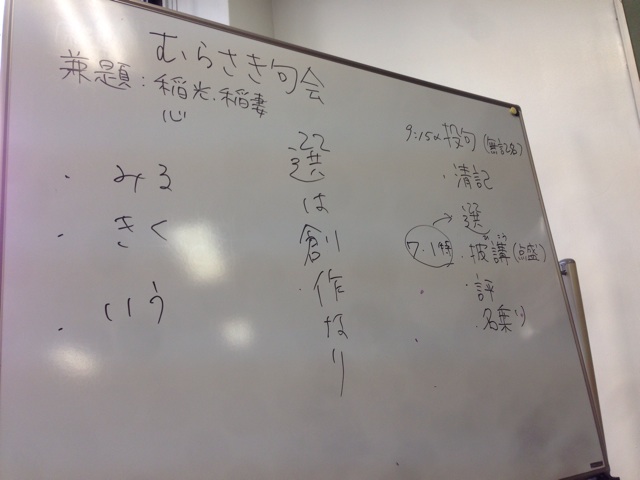 むらさき句会
兼題:稲光、稲妻
心
・みる
・きく
・いう
選は創作なり
9:15〆投句(無記名)
・清記
選
7・1特
・披講(点盛)
・評
・名乗り